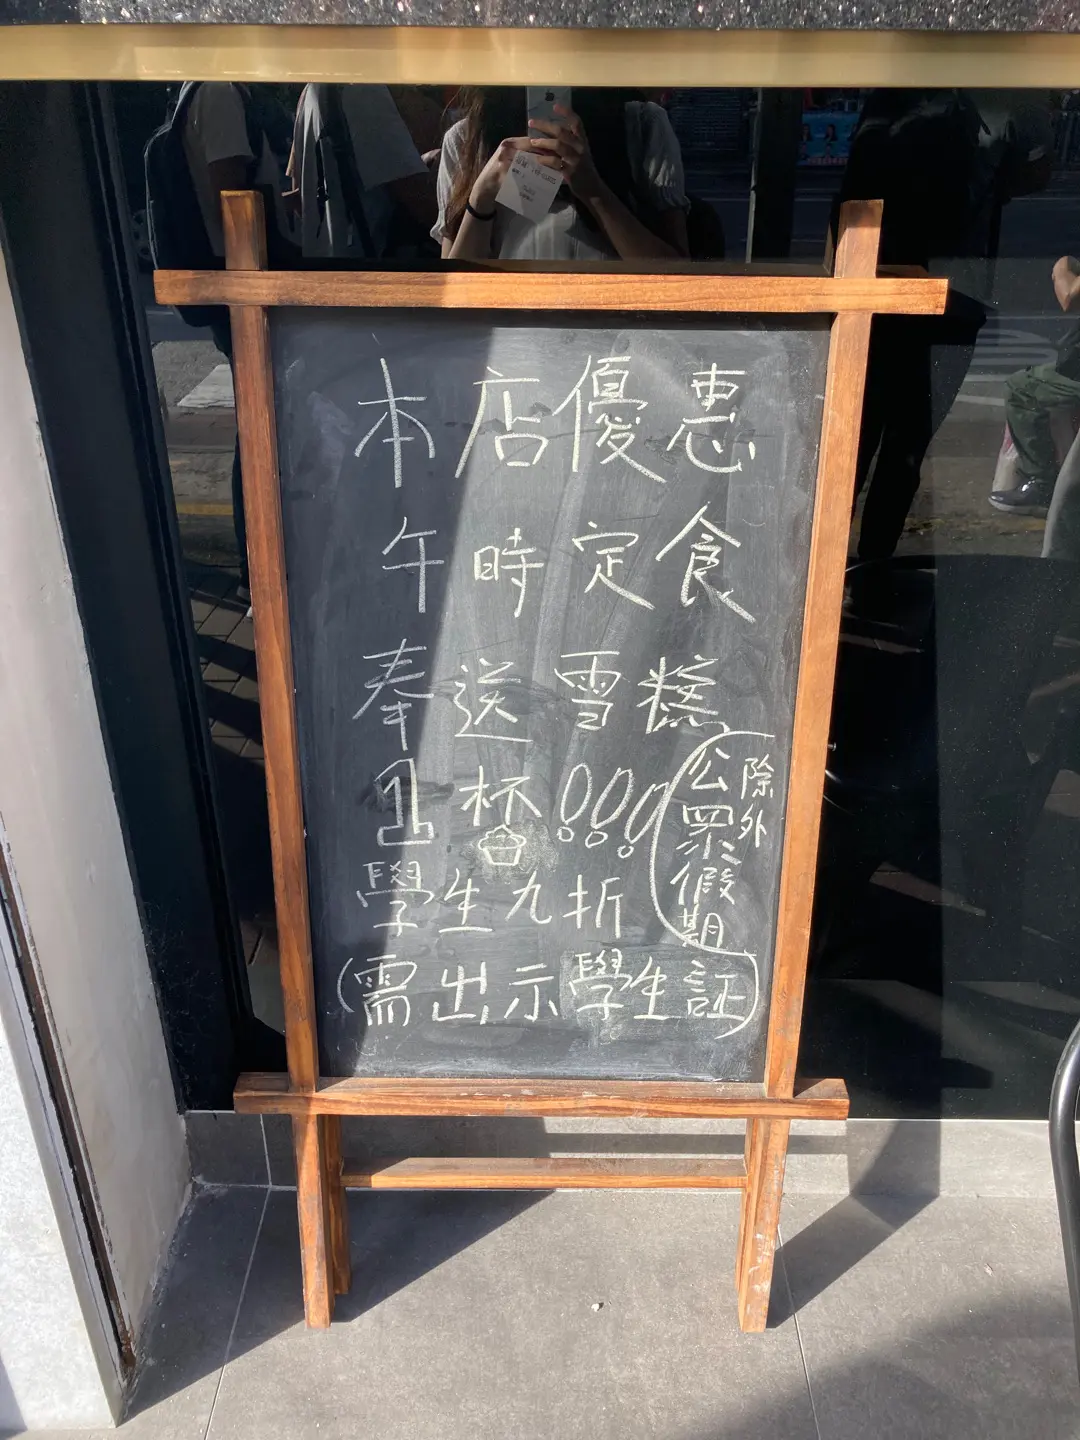 本店優惠
午時定食
奉送雪糕
1杯!!!
(公眾假期
除外
學生九折
(需出示學生証)